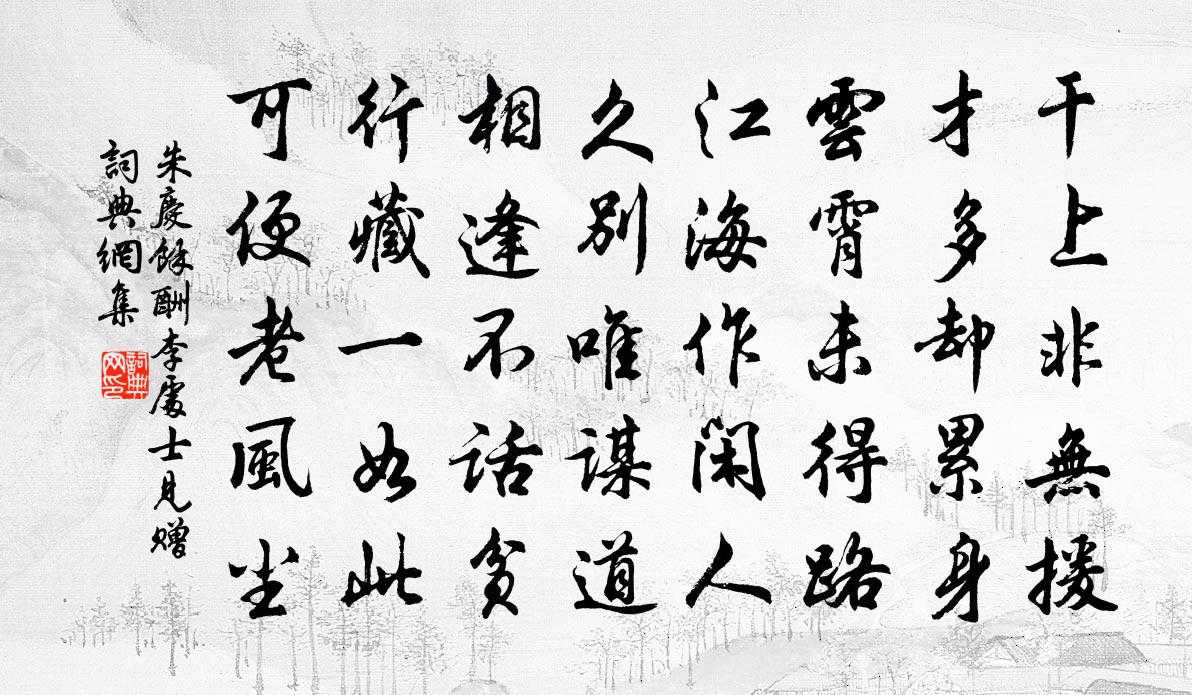 干上非無援
才多却累身
雲霄未得路
江海作閑人
久别唯謀道
相逢不話貧
行藏一如此
可便老風尘
朱慶餘酬李處士見赠
詞典網集
詞典
网印